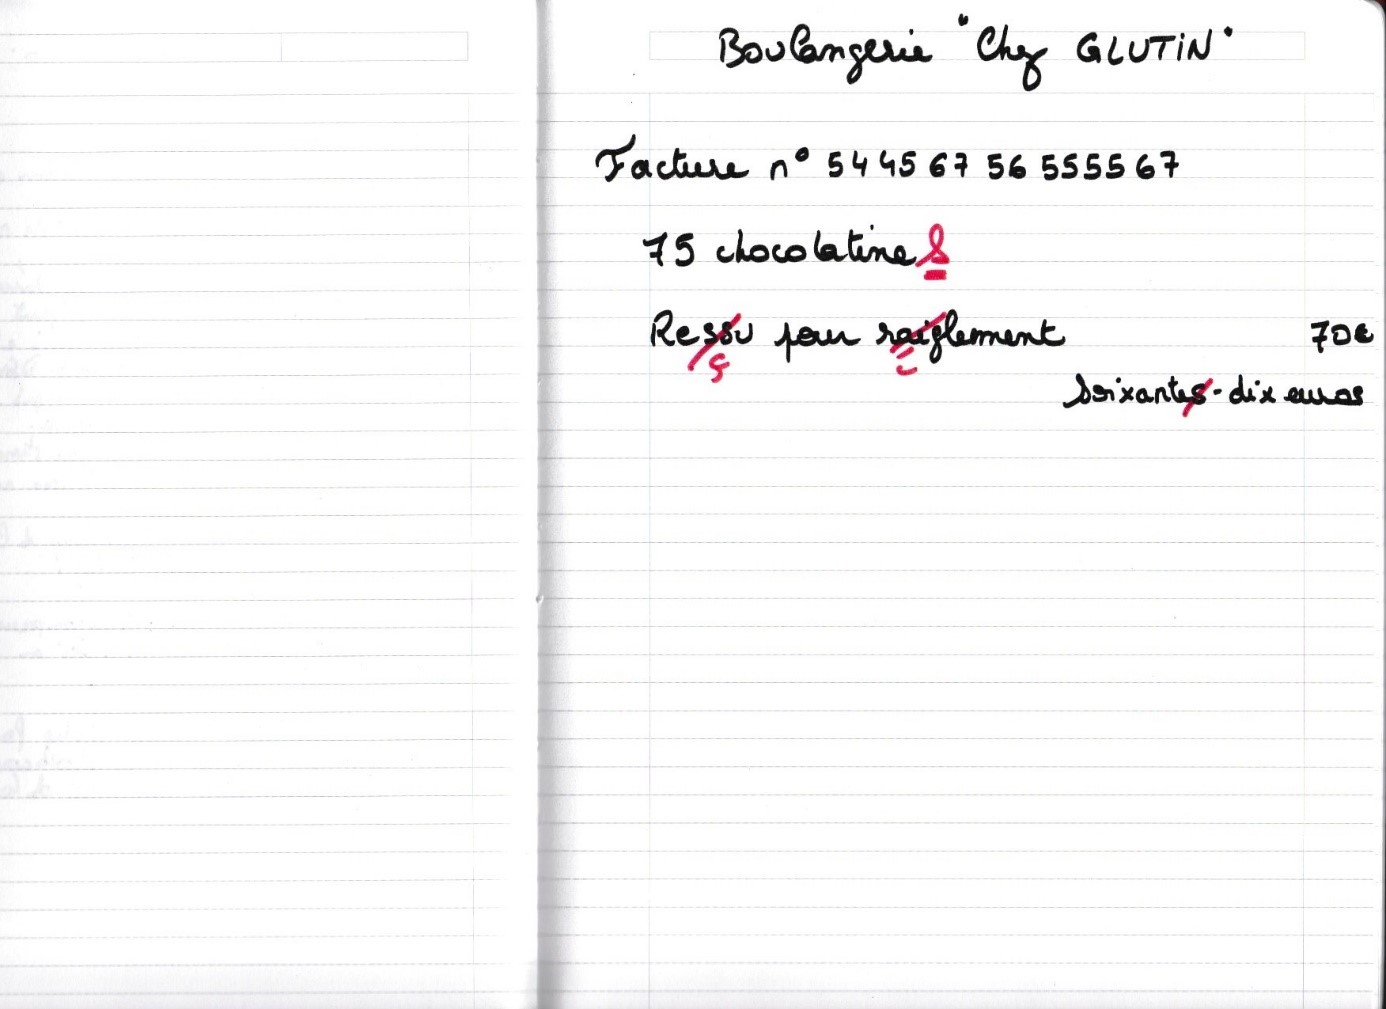 Boulangerie "Chez GLUTiN"
Facture n° 54 45 67 56 5555 67
75 chocolatines
Ressu pour raiglement 70€
ç è
Soixantes-dix euros